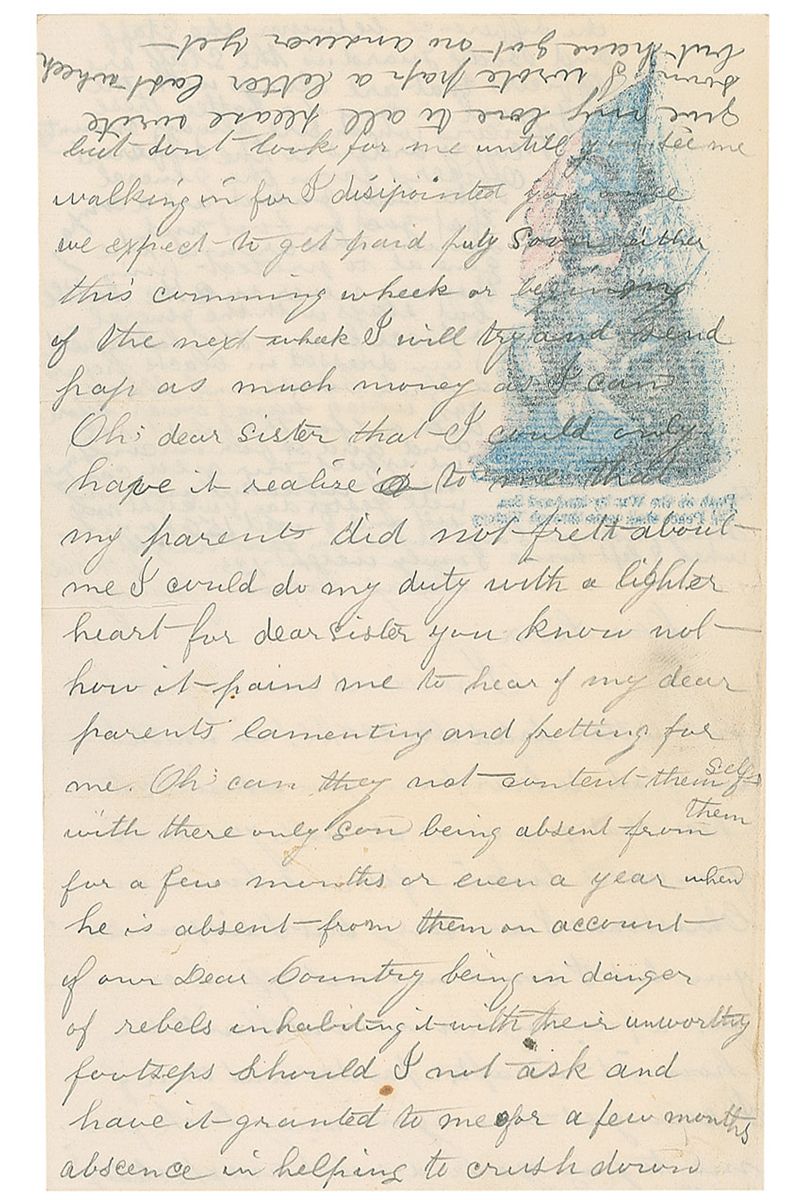 but dont look for me untill you see me
walking in for I disipointed you once
we expect to get paid puty soon either
this comming wheek or begining
of the next wheek I will try and send
pap as much money as I can
Oh' dear sister that I could only
have it realize to me that
my parents did not frett about
me I could do my duty with a lighter
heart for dear sister you know not
how it pains me to hear of my dear
parents lamenting and fretting for
me. Oh' can they not content them selfs
with there only son being absent from them
for a few months or even a year when
he is absent from them on account
of our Dear Country being in danger
of rebels inhabiting it with their unworthy
footseps should I not ask and
have it granted to me for a few months
abscence in helping to crush down
give my love to all please write
soon I wrote pap a letter last wheek
but have got no answer yet